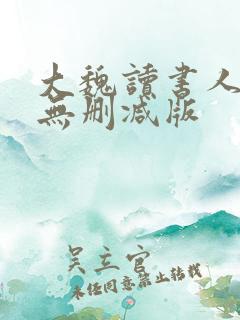 大魏讀書人
無刪減版
吴主官
未经同意禁止转载